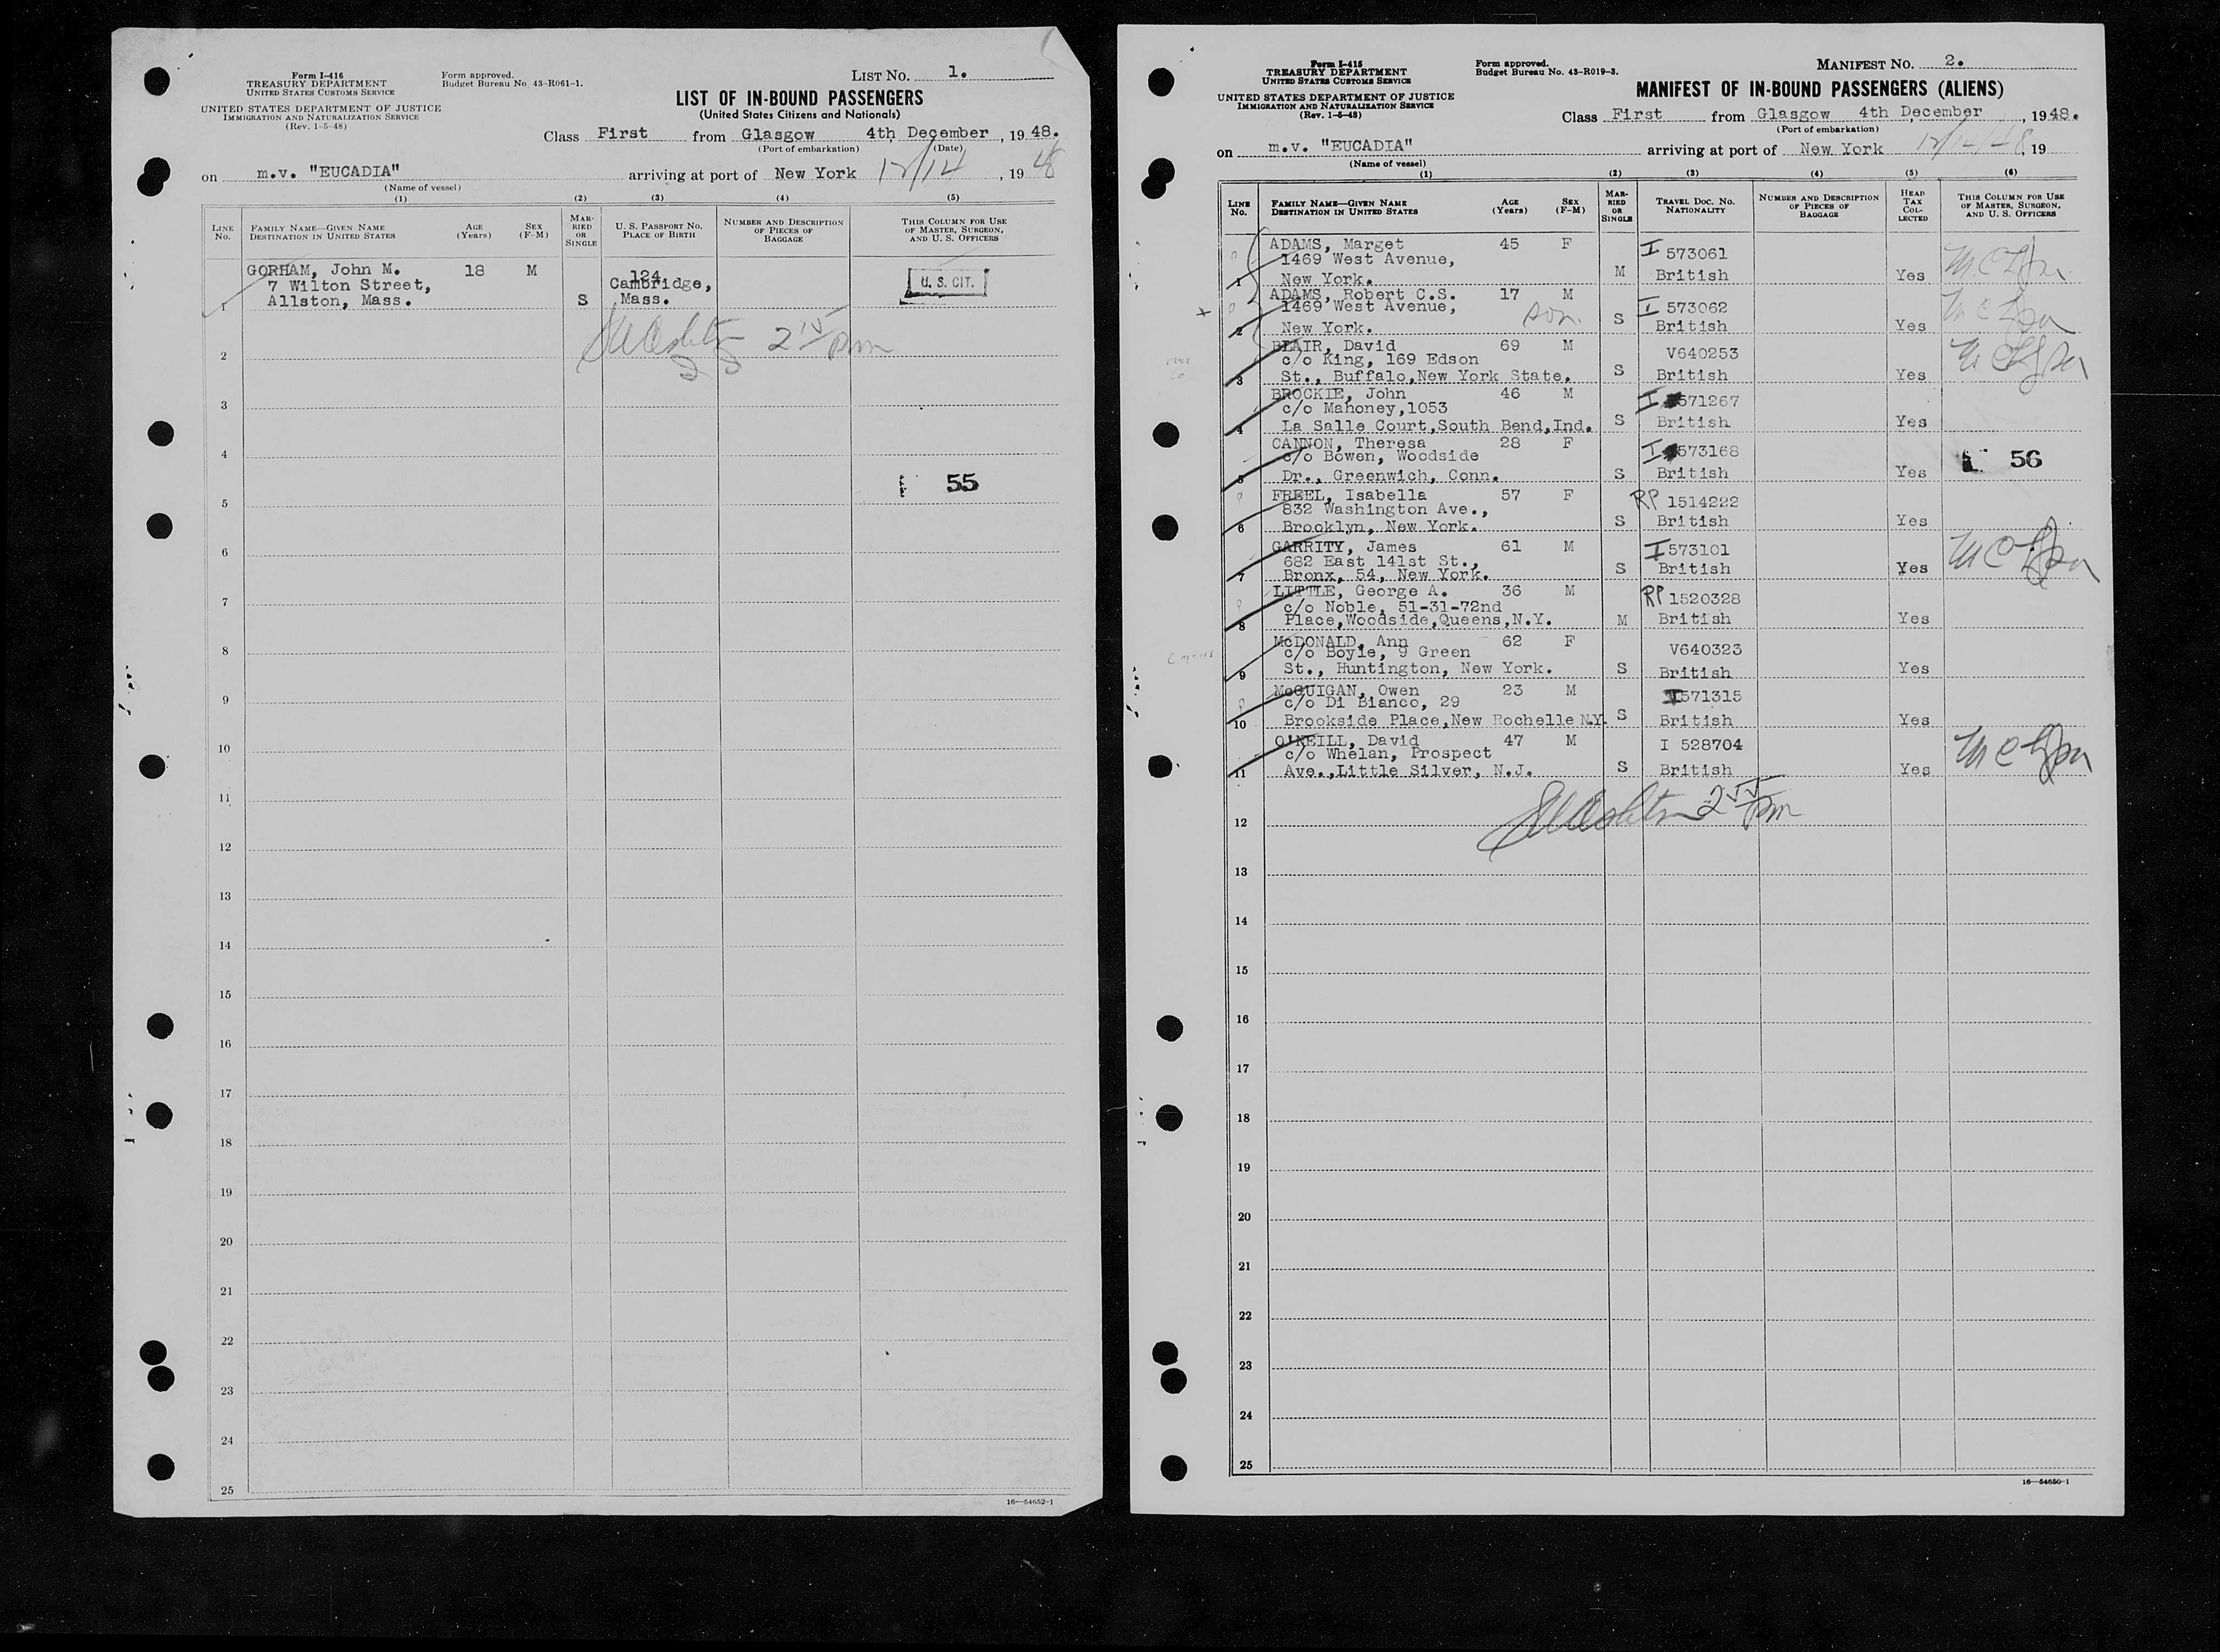 Form I-416
TREASURY DEPARTMENT
UNITED STATES CUSTOMS SERVICE
UNITED STATES DEPARTMENT OF JUSTICE
IMMIGRATION AND NATURALIZATION SERVICE
(Rev. 1-5-48)
Form approved.
Budget Bureau No. 43-R061-1.
LIST No. 1.
LIST OF IN-BOUND PASSENGERS
(United States Citizens and Nationals)
Class First from Glasgow 4th December, 1948.
(Port of embarkation) (Date)
on m.v. "EUCADIA" arriving at port of New York 12/14, 1948
(Name of vessel)
(1) (2) (3) (4) (5)
LINE No. FAMILY NAME—GIVEN NAME DESTINATION IN UNITED STATES AGE (Years) SEX (F-M) MARRIED OR SINGLE U. S. PASSPORT No. PLACE OF BIRTH NUMBER AND DESCRIPTION OF PIECES OF BAGGAGE THIS COLUMN FOR USE OF MASTER, SURGEON, AND U. S. OFFICERS
GORHAM, John M. 18 M 124 U. S. CIT.
7 Wilton Street, Cambridge,
1 Allston, Mass. S Mass.
2
3
4
55
5
6
7
8
9
10
11
12
13
14
15
16
17
18
19
20
21
22
23
24
25
16—54652-1
Form I-415
TREASURY DEPARTMENT
UNITED STATES CUSTOMS SERVICE
UNITED STATES DEPARTMENT OF JUSTICE
IMMIGRATION AND NATURALIZATION SERVICE
(Rev. 1-5-48)
Form approved.
Budget Bureau No. 43-R019-3.
MANIFEST No. 2.
MANIFEST OF IN-BOUND PASSENGERS (ALIENS)
Class First from Glasgow 4th December, 1948.
(Port of embarkation)
on m.v. "EUCADIA" arriving at port of New York 12/14/48, 19
(Name of vessel)
(1) (2) (3) (4) (5) (6)
LINE No. FAMILY NAME—GIVEN NAME DESTINATION IN UNITED STATES AGE (Years) SEX (F-M) MARRIED OR SINGLE TRAVEL DOC. No. NATIONALITY NUMBER AND DESCRIPTION OF PIECES OF BAGGAGE HEAD TAX COLLECTED THIS COLUMN FOR USE OF MASTER, SURGEON, AND U. S. OFFICERS
ADAMS, Marget 45 F I 573061
1469 West Avenue,
1 New York. M British Yes
ADAMS, Robert C.S. 17 M I 573062
1469 West Avenue, son.
2 New York. S British Yes
BLAIR, David 69 M V640253
c/o King, 169 Edson
3 St., Buffalo,New York State. S British Yes
BROCKIE, John 46 M I 571267
c/o Mahoney,1053
4 La Salle Court,South Bend,Ind. S British Yes
CANNON, Theresa 28 F I 573168
c/o Bowen, Woodside 56
5 Dr., Greenwich, Conn. S British Yes
FREEL, Isabella 57 F RP 1514222
832 Washington Ave.,
6 Brooklyn, New York. S British Yes
GARRITY, James 61 M I 573101
682 East 141st St.,
7 Bronx, 54, New York. S British Yes
LITTLE, George A. 36 M RP 1520328
c/o Noble, 51-31-72nd
8 Place,Woodside,Queens,N.Y. M British Yes
McDONALD, Ann 62 F V640323
c/o Boyle, 9 Green
9 St., Huntington, New York. S British Yes
McGUIGAN, Owen 23 M I571315
c/o Di Bianco, 29
10 Brookside Place,New Rochelle N.Y. S British Yes
O'NEILL, David 47 M I 528704
c/o Whelan, Prospect
11 Ave.,Little Silver, N.J. S British Yes
12
13
14
15
16
17
18
19
20
21
22
23
24
25
16—54650-1